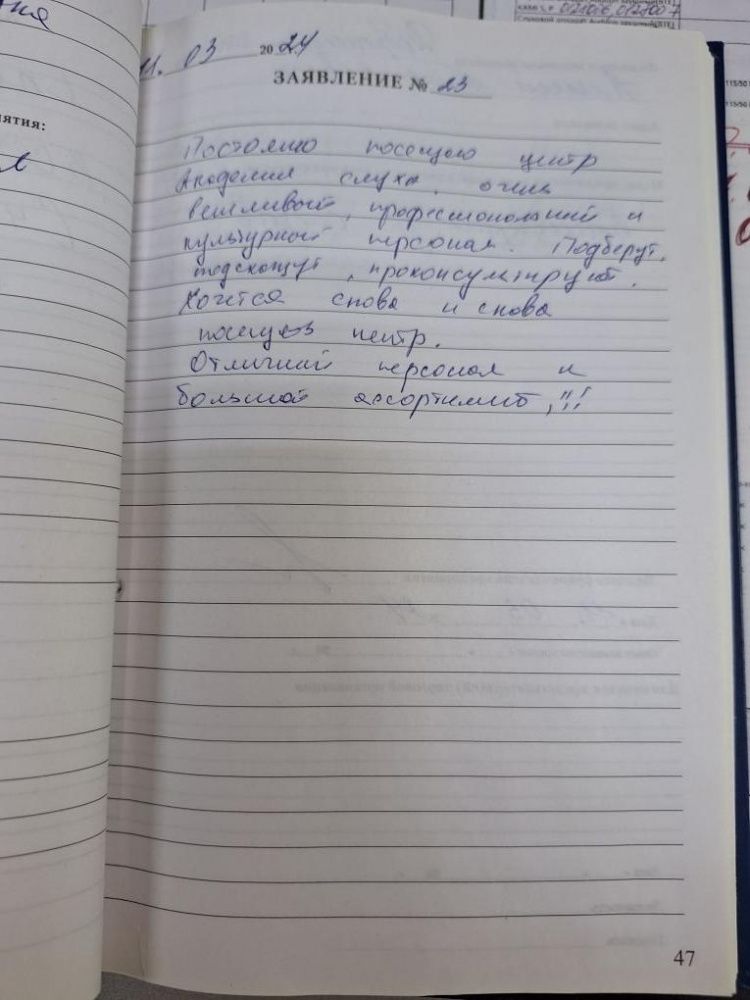 КККМ С.Р. 061006, 012100 7
11. 03 2024
ЗАЯВЛЕНИЕ № 23
ятия:
Постояно посещою центр
Академия слуха, очень
вежливый, професиональний и
культурной персонал. Подберут,
подскажут, проконсультируют.
Хочется снова и снова
посещать центр.
Отличний персонал и
большой ассортимент, !!!
47